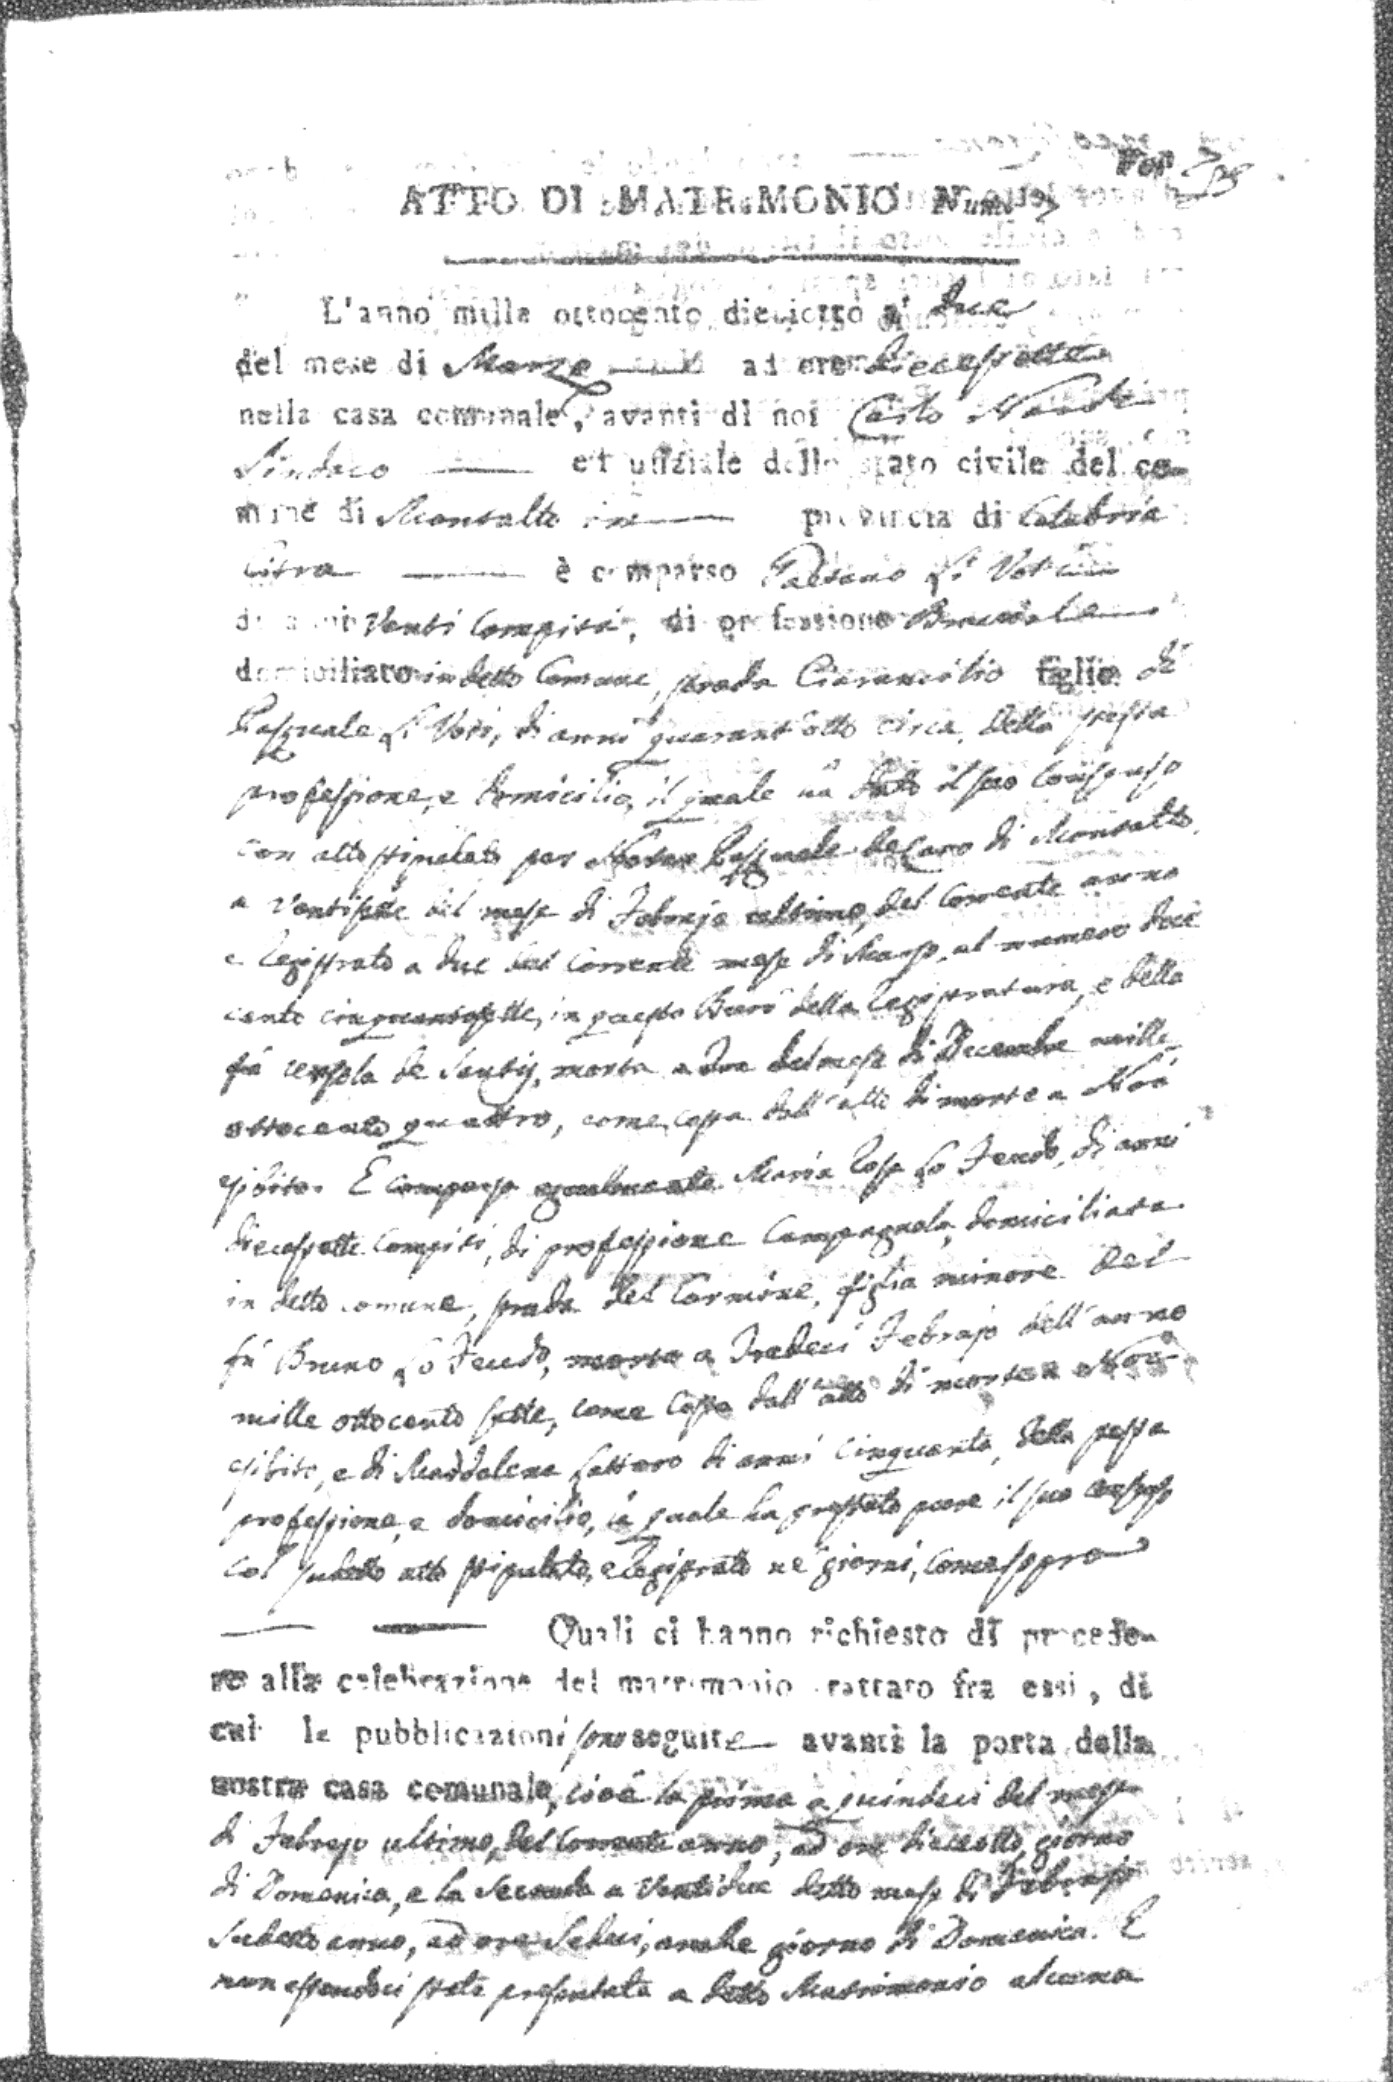 ATTO DI MATRIMONIO Num. 7
L'anno mille ottocento dieciotto a' due
del mese di Marzo ad ore diecessette
nella casa comunale, avanti di noi Carlo
Sindaco ed uffiziale dello stato civile del co-
mune di Montalto in provincia di Calabria
Citra è comparso Gaetano Li Voti
di anni Venti compiti, di professione Bracciale
domiciliato in detto Comune, strada figlio di
Pasquale Li Voti, di anni quarant'otto circa, della stessa
professione, e domicilio, il quale ha dato il suo consenso
con atto stipulato per Notar Pasquale de Caro di Montalto
a ventisette del mese di Febrajo ultimo, del corrente anno
e registrato a due del corrente mese di Marzo, al numero due
cento cinquantasette, in questo Burò della registratura, e della
fù de Santis, morta a due del mese di Decembre mille
ottocento quattro, come costa dall'atto di morte a Noi
esibito. E comparsa egualmente Maria Rosa Lo Feudo, di anni
diecessette compiti, di professione Campagnola, domiciliata
in detto comune, strada del Carmine, figlia minore del
fù Bruno Lo Feudo, morto a Tredeci Febrajo dell'anno
mille ottocento sette, come costa dall'atto di morte a Noi
esibito, e di Maddalena Lattaro di anni cinquanta, della stessa
professione, e domicilio, la quale ha prestato pure il suo consenso
col sudetto atto stipulato, e registrato ne' giorni, come sopra
Quali ci hanno richiesto di procede-
re alla celebrazione del matrimonio trattato fra essi, di
cui le pubblicazioni sono seguite avanti la porta della
nostra casa comunale, cioè la prima a quindeci del mese
di Febrajo ultimo, del corrente anno, ad ore dieciotto, giorno
di Domenica, e la seconda a ventidue detto mese di Febrajo
sudetto anno, ad ore sedeci, anche giorno di Domenica. E
non essendoci stata presentata a detto Matrimonio alcuna